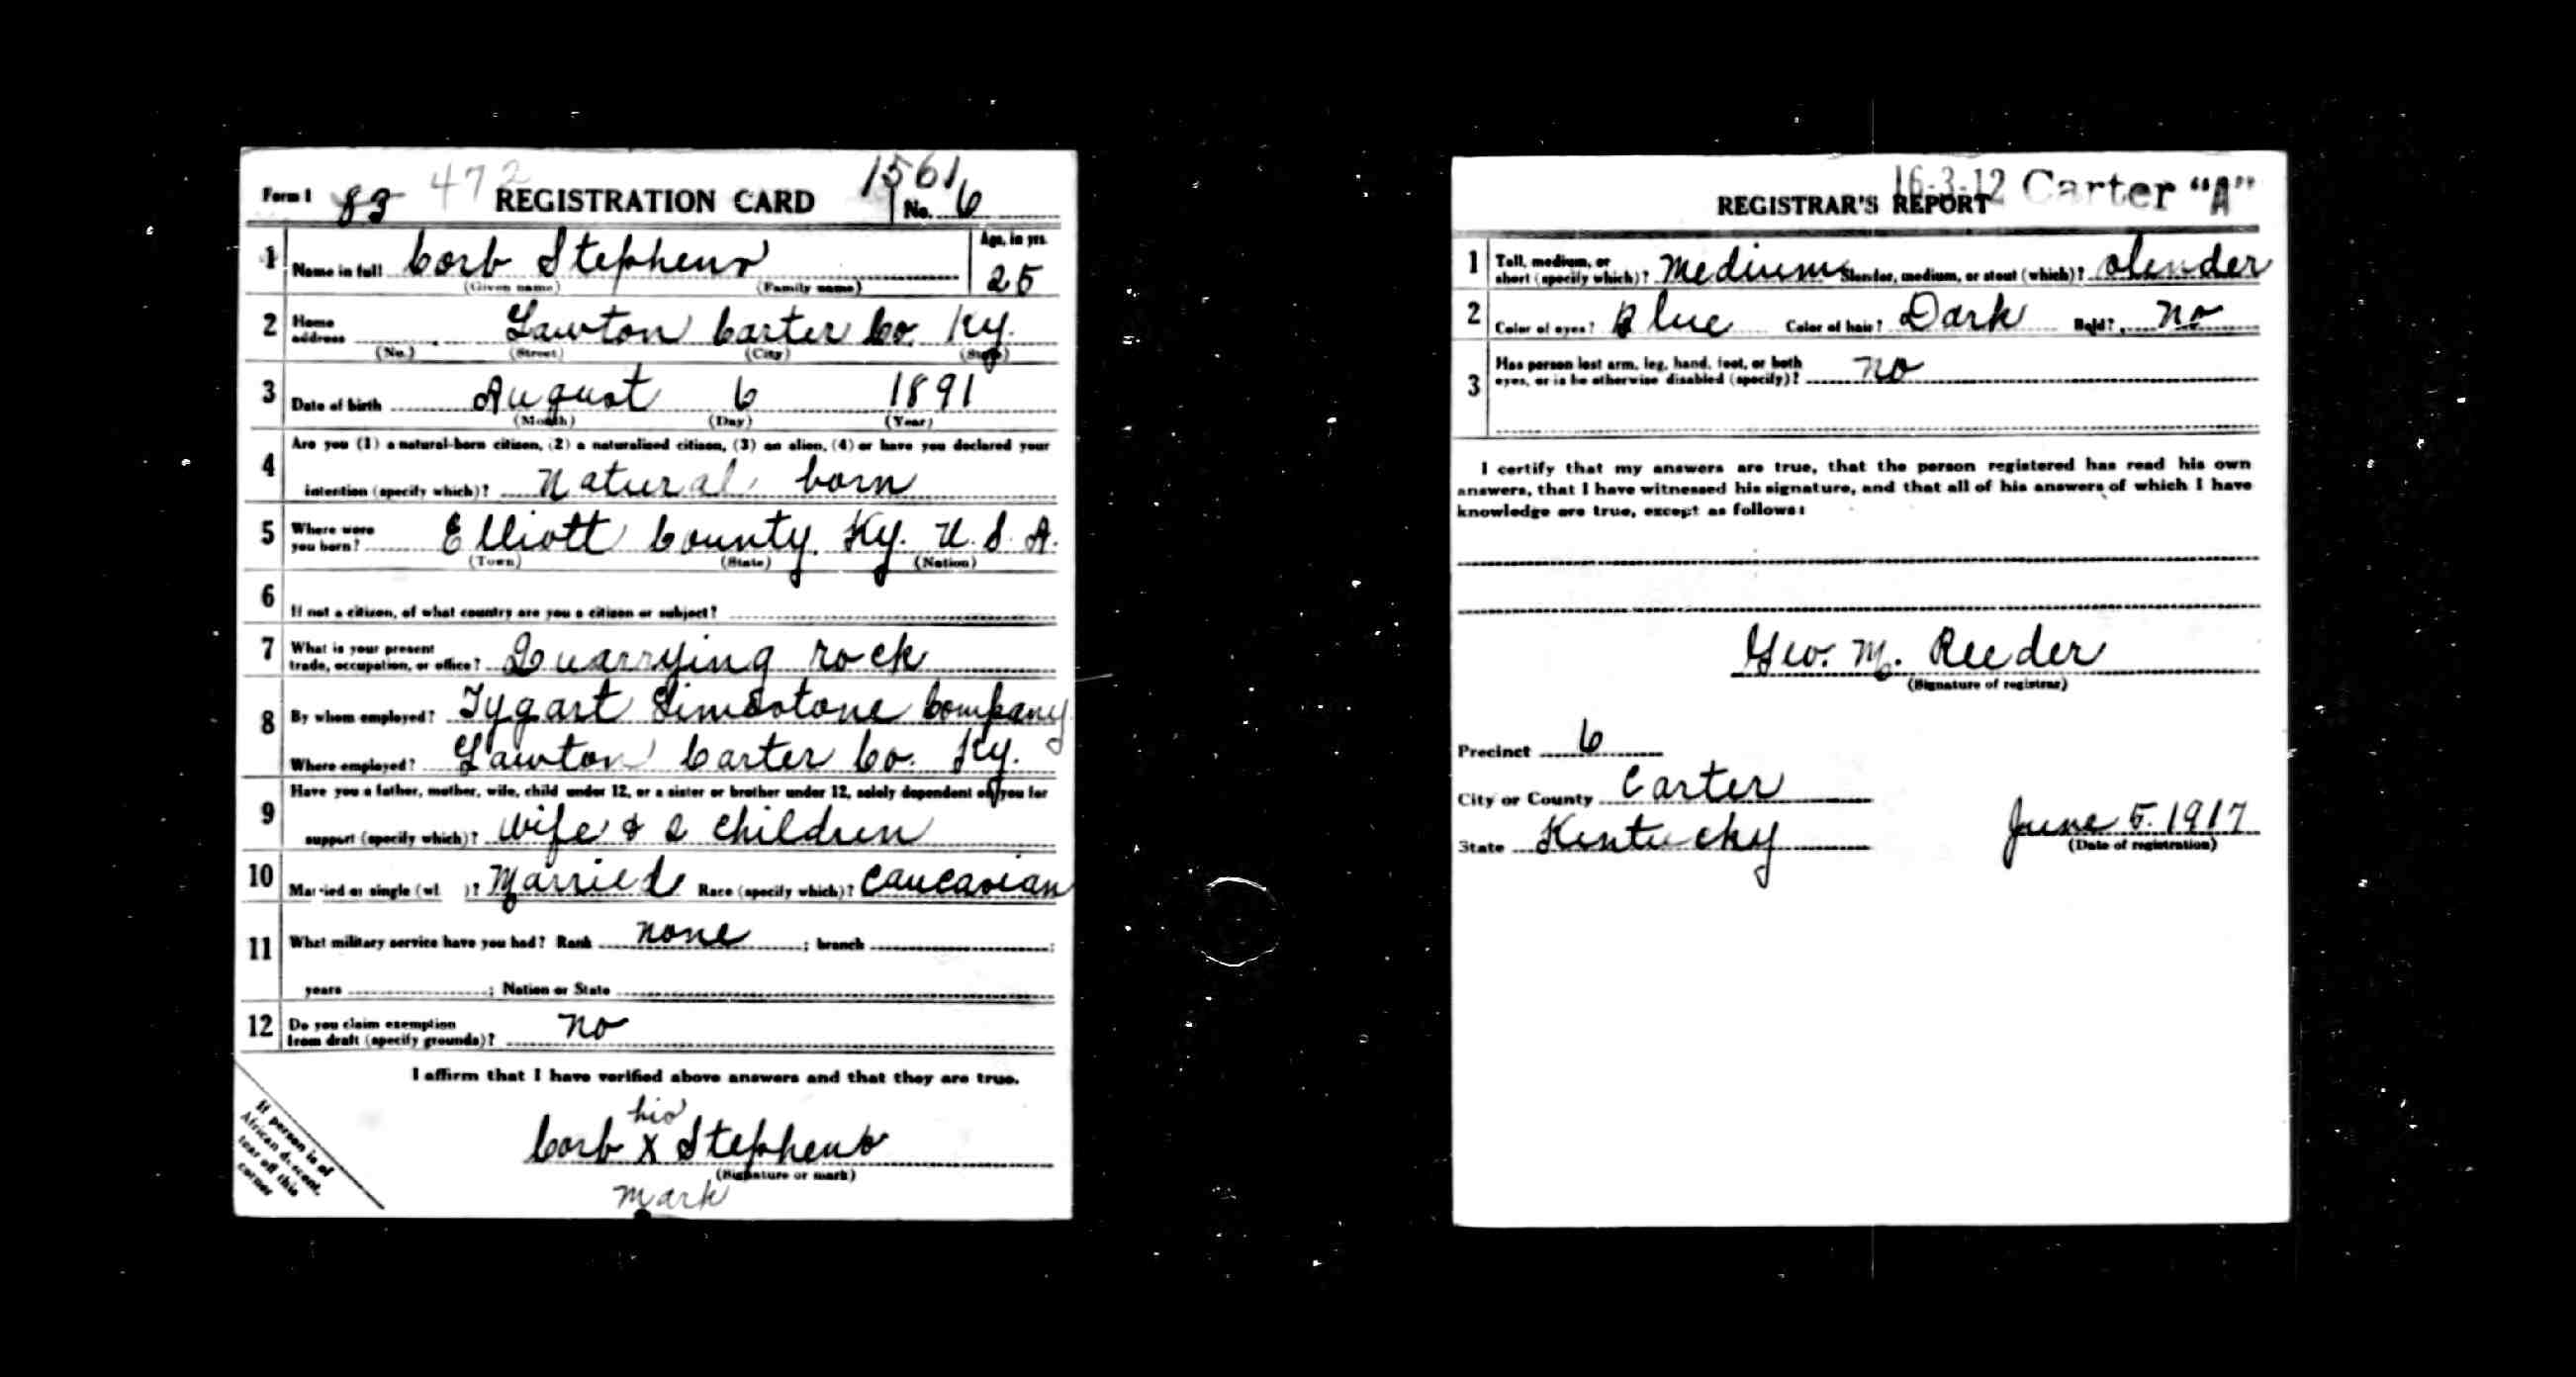 Form 1 83 472 REGISTRATION CARD 1561 No. 6
1 Name in full Corb Stephens Age, in yrs. 25
(Given name) (Family name)
2 Home address Lawton Carter Co. Ky.
(No.) (Street) (City) (State)
3 Date of birth August 6 1891
(Month) (Day) (Year)
4 Are you (1) a natural-born citizen, (2) a naturalized citizen, (3) an alien, (4) or have you declared your
intention (specify which)? Natural born
5 Where were you born? Elliott County, Ky. U.S.A.
(Town) (State) (Nation)
6 If not a citizen, of what country are you a citizen or subject?
7 What is your present trade, occupation, or office? Quarrying rock
8 By whom employed? Tygart Limestone Company
Where employed? Lawton Carter Co. Ky.
9 Have you a father, mother, wife, child under 12, or a sister or brother under 12, solely dependent on you for
support (specify which)? Wife & 2 children
10 Married or single (wh )? Married Race (specify which)? Caucasian
11 What military service have you had? Rank none ; branch ;
years ; Nation or State
12 Do you claim exemption from draft (specify grounds)? No
I affirm that I have verified above answers and that they are true.
his
Corb X Stephens
(Signature or mark)
mark
If person is of
African descent,
tear off this
corner
16-3-12 Carter "A"
REGISTRAR'S REPORT
1 Tall, medium, or short (specify which)? Medium Slender, medium, or stout (which)? Slender
2 Color of eyes? Blue Color of hair? Dark Bald? No
3 Has person lost arm, leg, hand, foot, or both eyes, or is he otherwise disabled (specify)? No
I certify that my answers are true, that the person registered has read his own
answers, that I have witnessed his signature, and that all of his answers of which I have
knowledge are true, except as follows:
Geo. M. Reeder
(Signature of registrar)
Precinct 6
City or County Carter
State Kentucky June 5. 1917
(Date of registration)